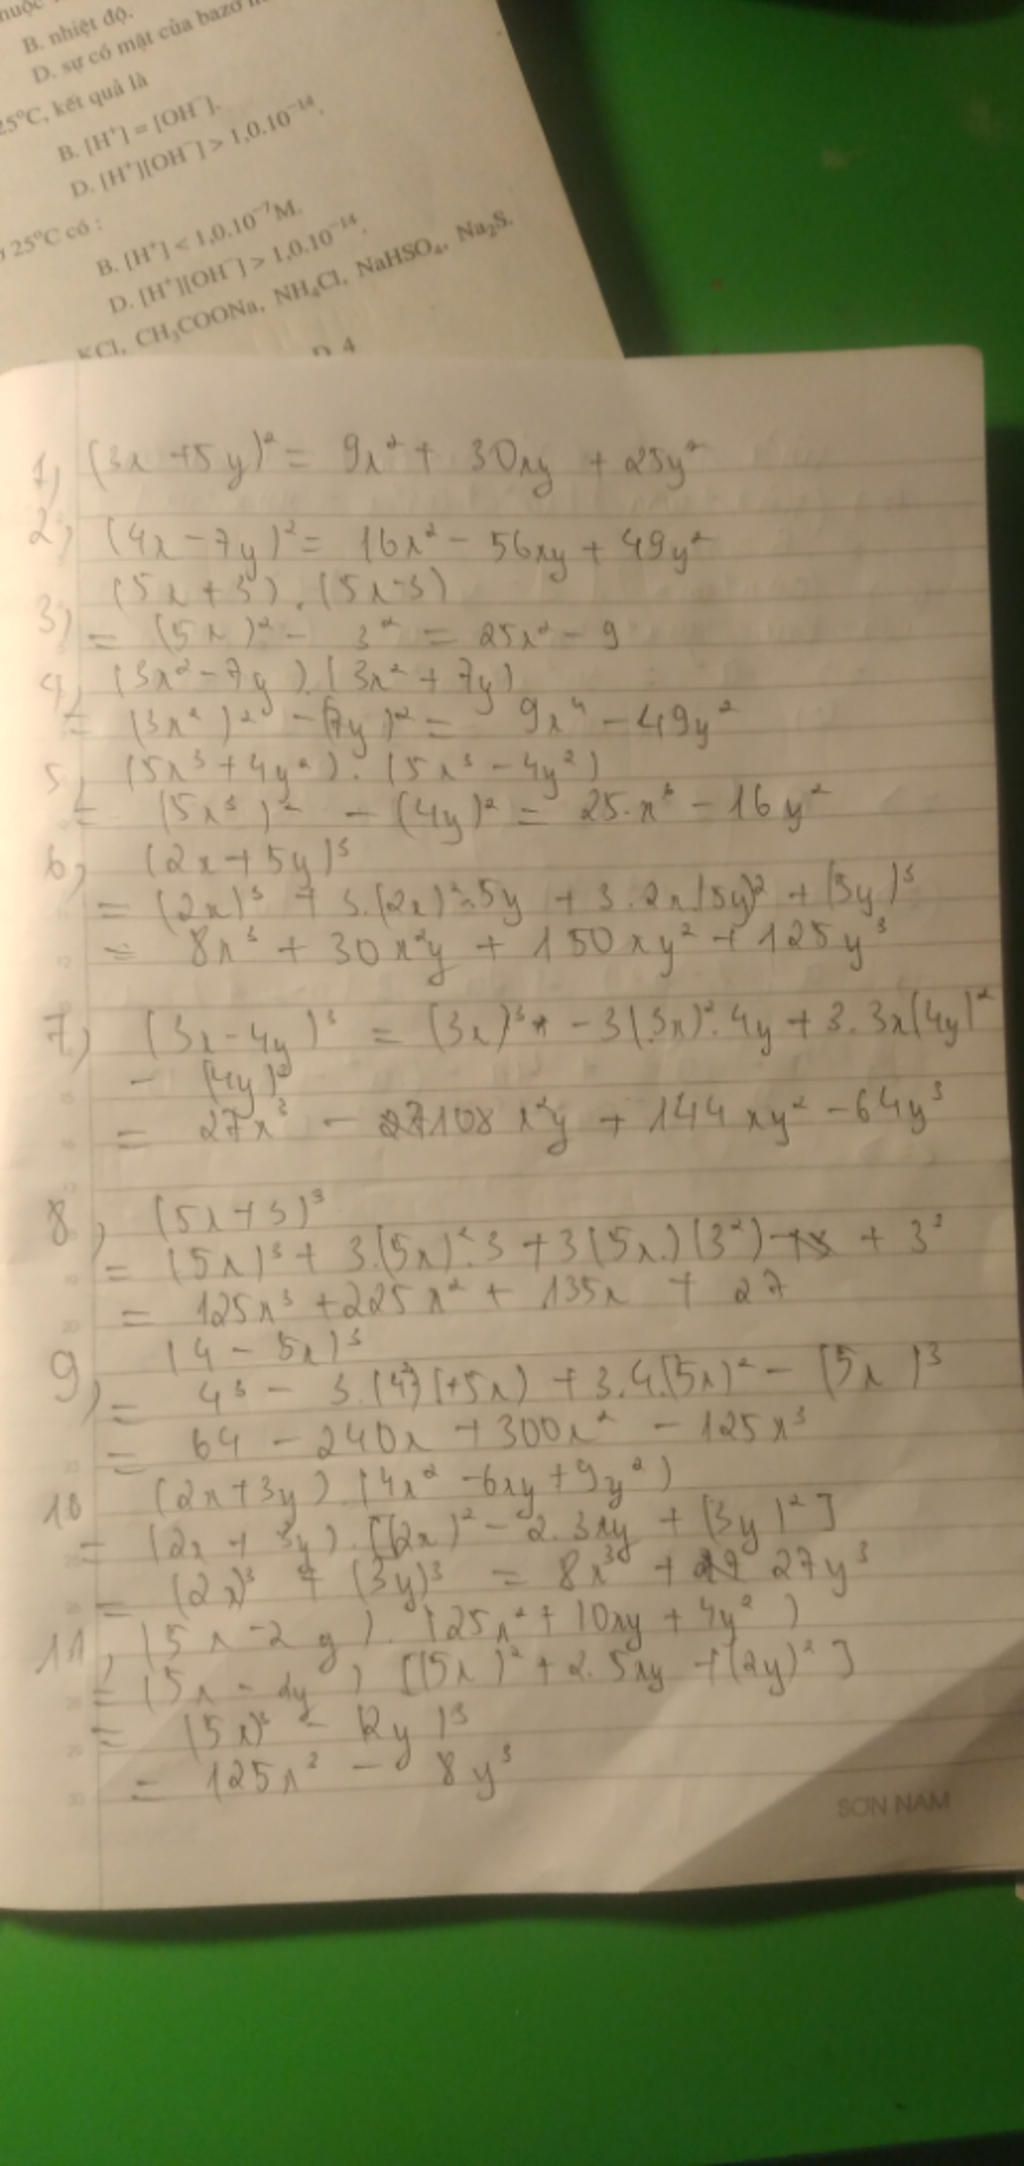 B. nhiệt độ.
D. sự có mặt của bazơ
25°C, kết quả là
B. [H⁺] = [OH⁻].
D. [H⁺][OH⁻] > 1,0.10⁻¹⁴.
25°C có :
B. [H⁺] < 1,0.10⁻⁷M.
D. [H⁺][OH⁻] > 1,0.10⁻¹⁴.
KCl, CH₃COONa, NH₄Cl, NaHSO₄, Na₂S.
D. 4
1) (3x + 5y)² = 9x² + 30xy + 25y²
2) (4x - 7y)² = 16x² - 56xy + 49y²
(5x + 3).(5x - 3)
3) = (5x)² - 3² = 25x² - 9
4) (3x² - 7y).(3x² + 7y)
= (3x²)² - (7y)² = 9x⁴ - 49y²
5) (5x³ + 4y²).(5x³ - 4y²)
= (5x³)² - (4y)² = 25.x⁶ - 16y²
6) (2x + 5y)³
= (2x)³ + 3.(2x)².5y + 3.2x(5y)² + (5y)³
= 8x³ + 30x²y + 150xy² + 125y³
7) (3x - 4y)³ = (3x)³ - 3(3x)².4y + 3.3x(4y)²
- (4y)³
= 27x³ - 108x²y + 144xy² - 64y³
8) (5x + 3)³
= (5x)³ + 3.(5x)².3 + 3(5x)(3²) + 3³
= 125x³ + 225x² + 135x + 27
(4 - 5x)³
9) = 4³ - 3.(4²)(+5x) + 3.4.(5x)² - (5x)³
= 64 - 240x + 300x² - 125x³
10 (2x + 3y).(4x² - 6xy + 9y²)
= (2x + 3y).[(2x)² - 2.3xy + (3y)²]
= (2x)³ + (3y)³ = 8x³ + 27y³
11) (5x - 2y).(25x² + 10xy + 4y²)
= (5x - 2y) [(5x)² + 2.5xy + (2y)²]
= (5x)³ - (2y)³
= 125x³ - 8y³
SON NAM